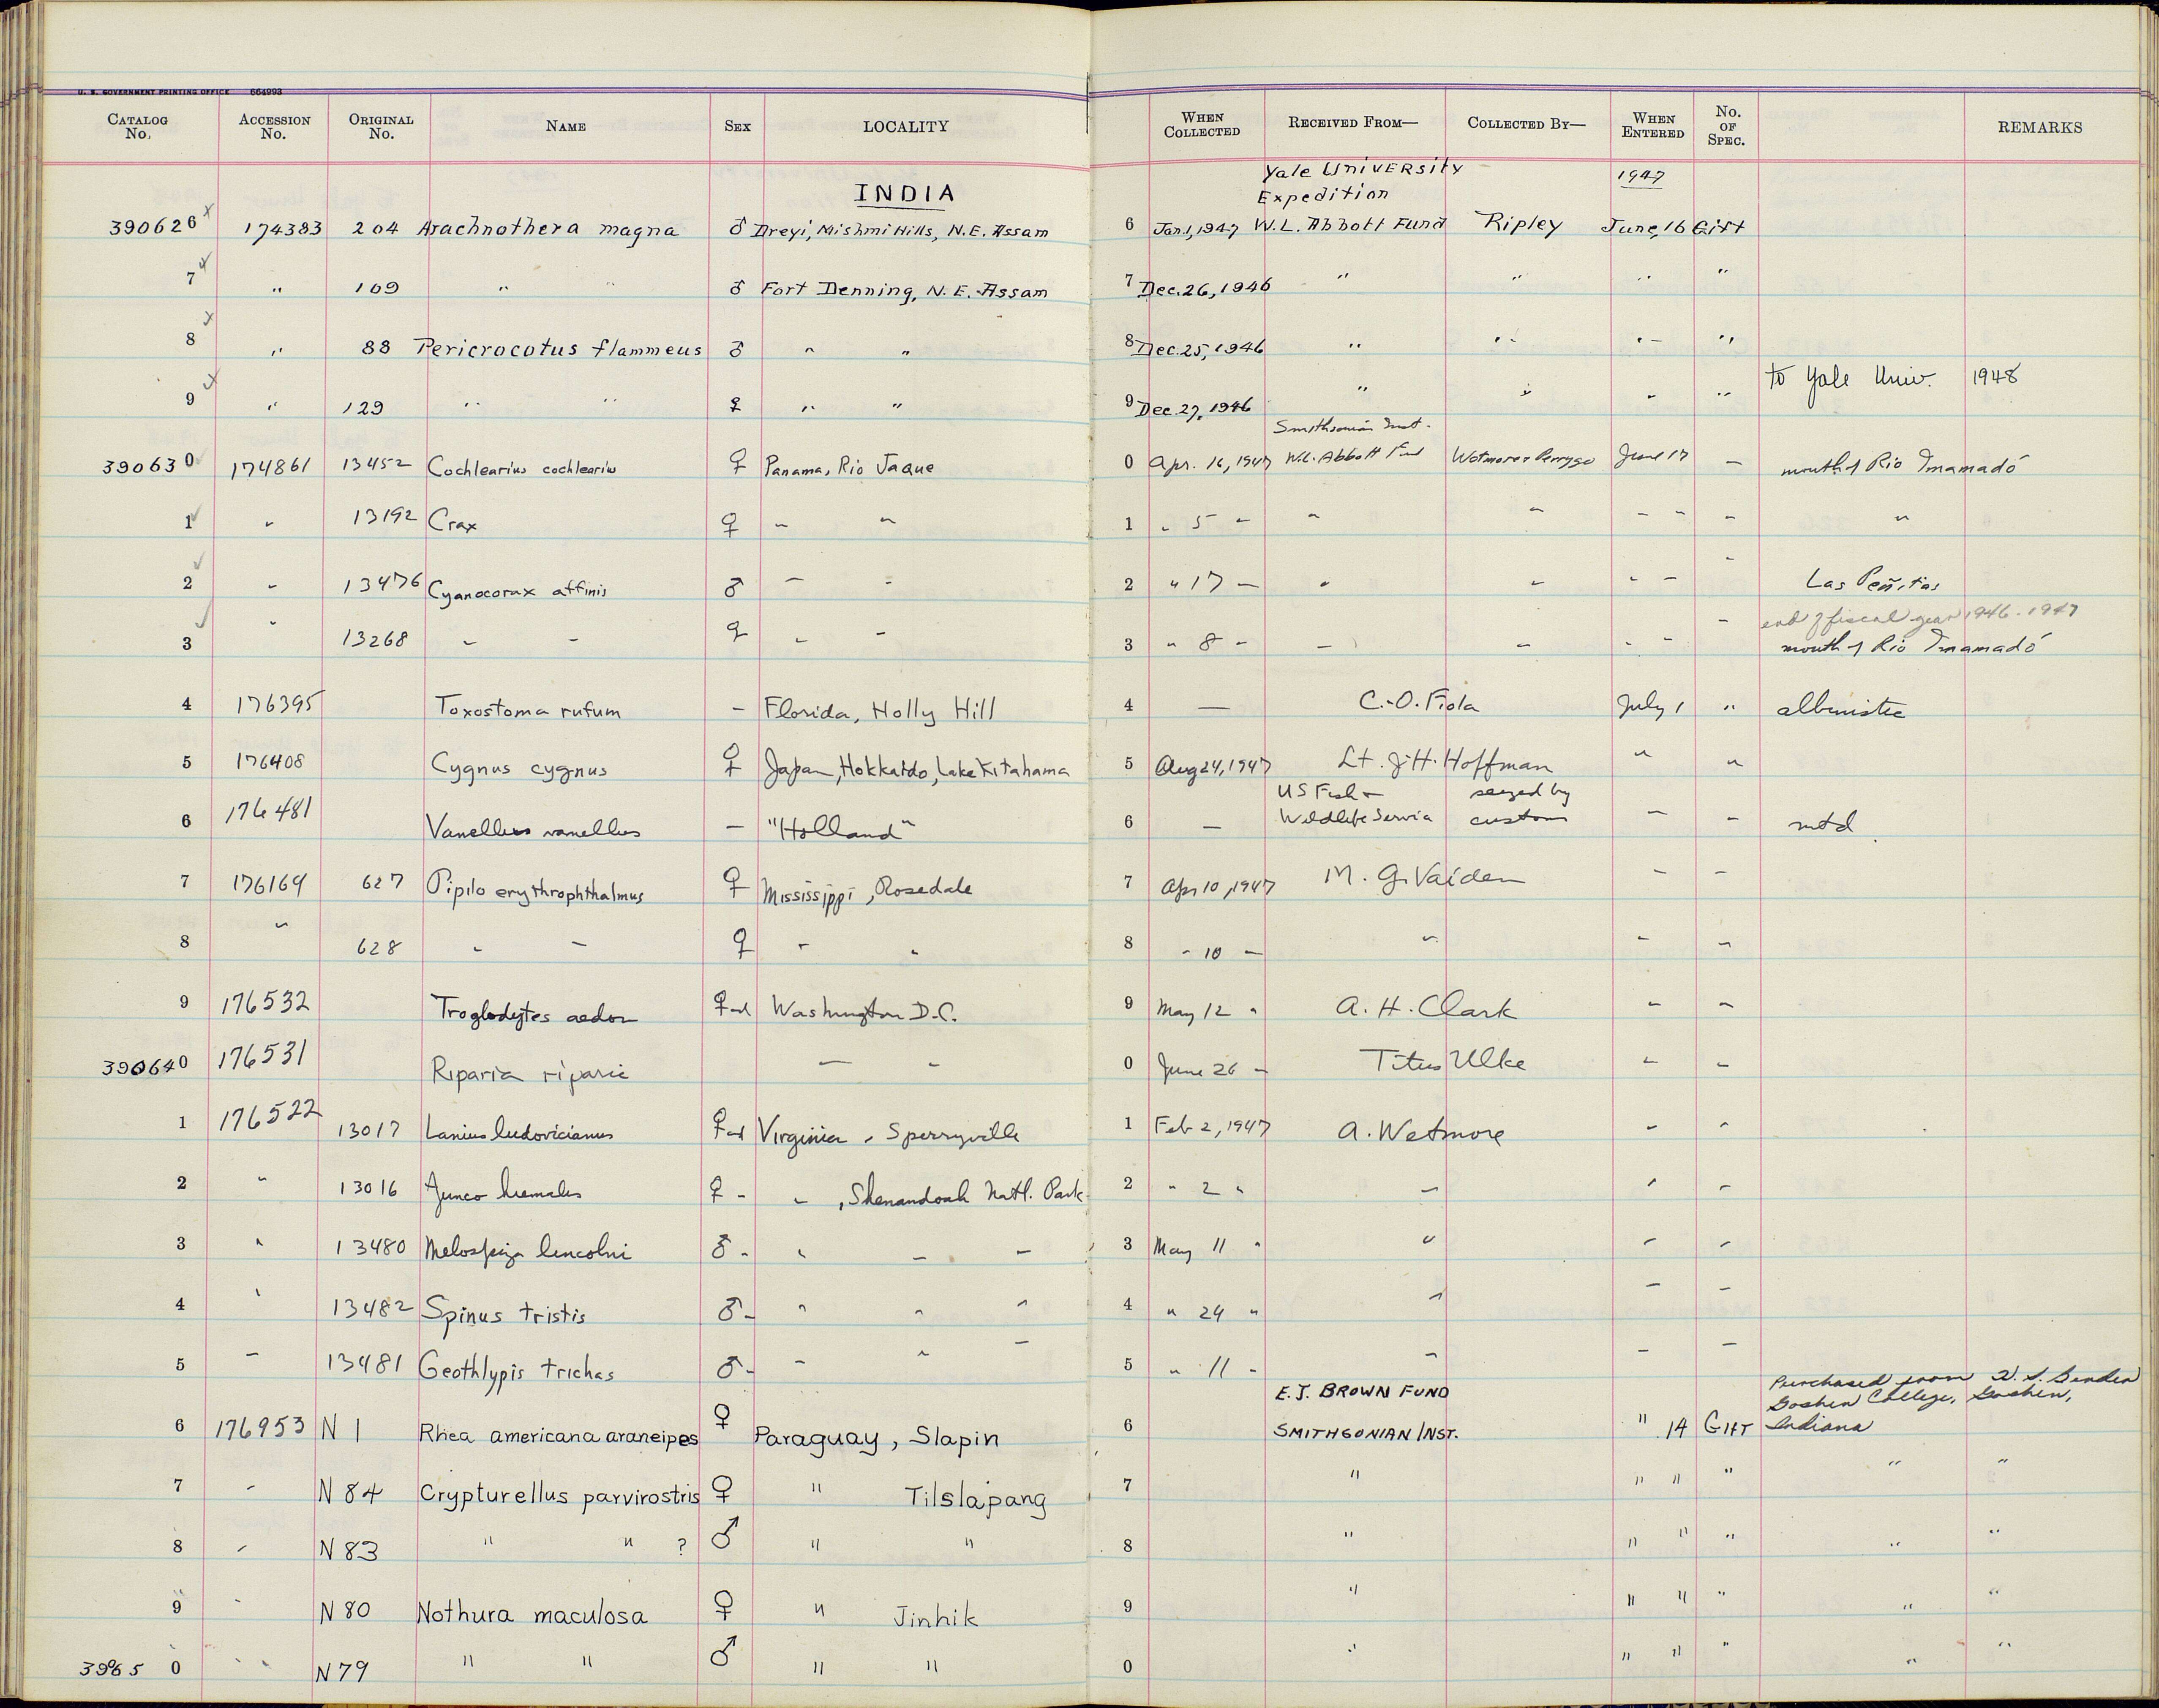 U. S. GOVERNMENT PRINTING OFFICE 664993
CATALOG No. ACCESSION No. ORIGINAL No. NAME SEX LOCALITY WHEN COLLECTED RECEIVED FROM— COLLECTED BY— WHEN ENTERED No. OF SPEC. REMARKS
INDIA Yale University Expedition 1947
390626 174383 204 Arachnothera magna ♂ Dreyi, Mishmi Hills, N.E. Assam 6 Jan.1,1947 W.L. Abbott Fund Ripley June 16 Gift
7 " 109 " " ♂ Fort Denning, N.E. Assam 7 Dec.26,1946 " " " "
8 " 88 Pericrocotus flammeus ♂ " " 8 Dec.25,1946 " " " "
9 " 129 " " ♀ " " 9 Dec.27,1946 " " " " to Yale Univ. 1948
Smithsonian Inst.
390630 174861 13452 Cochlearius cochlearius ♀ Panama, Rio Jaque 0 Apr. 16, 1947 W.L. Abbott Fund Wetmore & Perrygo June 17 " mouth of Rio Imamadó
1 " 13192 Crax ♀ " " 1 " 5 " " " " " " "
2 " 13476 Cyanocorax affinis ♂ " " 2 " 17 " " " " " " Las Peñitas
end of fiscal year 1946-1947
3 " 13268 " " ♀ " " 3 " 8 " " " " " " mouth of Rio Imamadó
4 176395 Toxostoma rufum — Florida, Holly Hill 4 — C.O. Fiola July 1 " albinistic
5 176408 Cygnus cygnus ♀ Japan, Hokkaido, Lake Kitahama 5 Aug 24, 1947 Lt. J.H. Hoffman " "
6 176481 Vanellus vanellus — "Holland" 6 — US Fish & Wildlife Service seized by customs " " mtd
7 176164 627 Pipilo erythrophthalmus ♀ Mississippi, Rosedale 7 Apr 10, 1947 M. G. Vaiden " "
8 " 628 " " ♀ " " 8 " 10 " " " "
9 176532 Troglodytes aedon ♀ad Washington D.C. 9 May 12 " A. H. Clark " "
390640 176531 Riparia riparia — " 0 June 26 " Titus Ulke " "
1 176522 13017 Lanius ludovicianus ♀ad Virginia, Sperryville 1 Feb 2, 1947 A. Wetmore " "
2 " 13016 Junco hiemalis ♀ " " , Shenandoah Natl. Park 2 " 2 " " " "
3 " 13480 Melospiza lincolni ♂ " " " " 3 May 11 " " " "
4 " 13482 Spinus tristis ♂ " " " " 4 " 24 " " " "
5 " 13481 Geothlypis trichas ♂ " " " " 5 " 11 " " " "
E. J. BROWN FUND Purchased from
Goshen College, Goshen,
6 176953 N 1 Rhea americana araneipes ♀ Paraguay, Slapin 6 SMITHSONIAN INST. " 14 GIFT Indiana
7 " N 84 Crypturellus parvirostris ♀ " Tilslapang 7 " " " " " "
8 " N 83 " " ? ♂ " " 8 " " " " " "
9 " N 80 Nothura maculosa ♀ " Jinhik 9 " " " " " "
3965 0 " " N 79 " " ♂ " " 0 " " " " " "